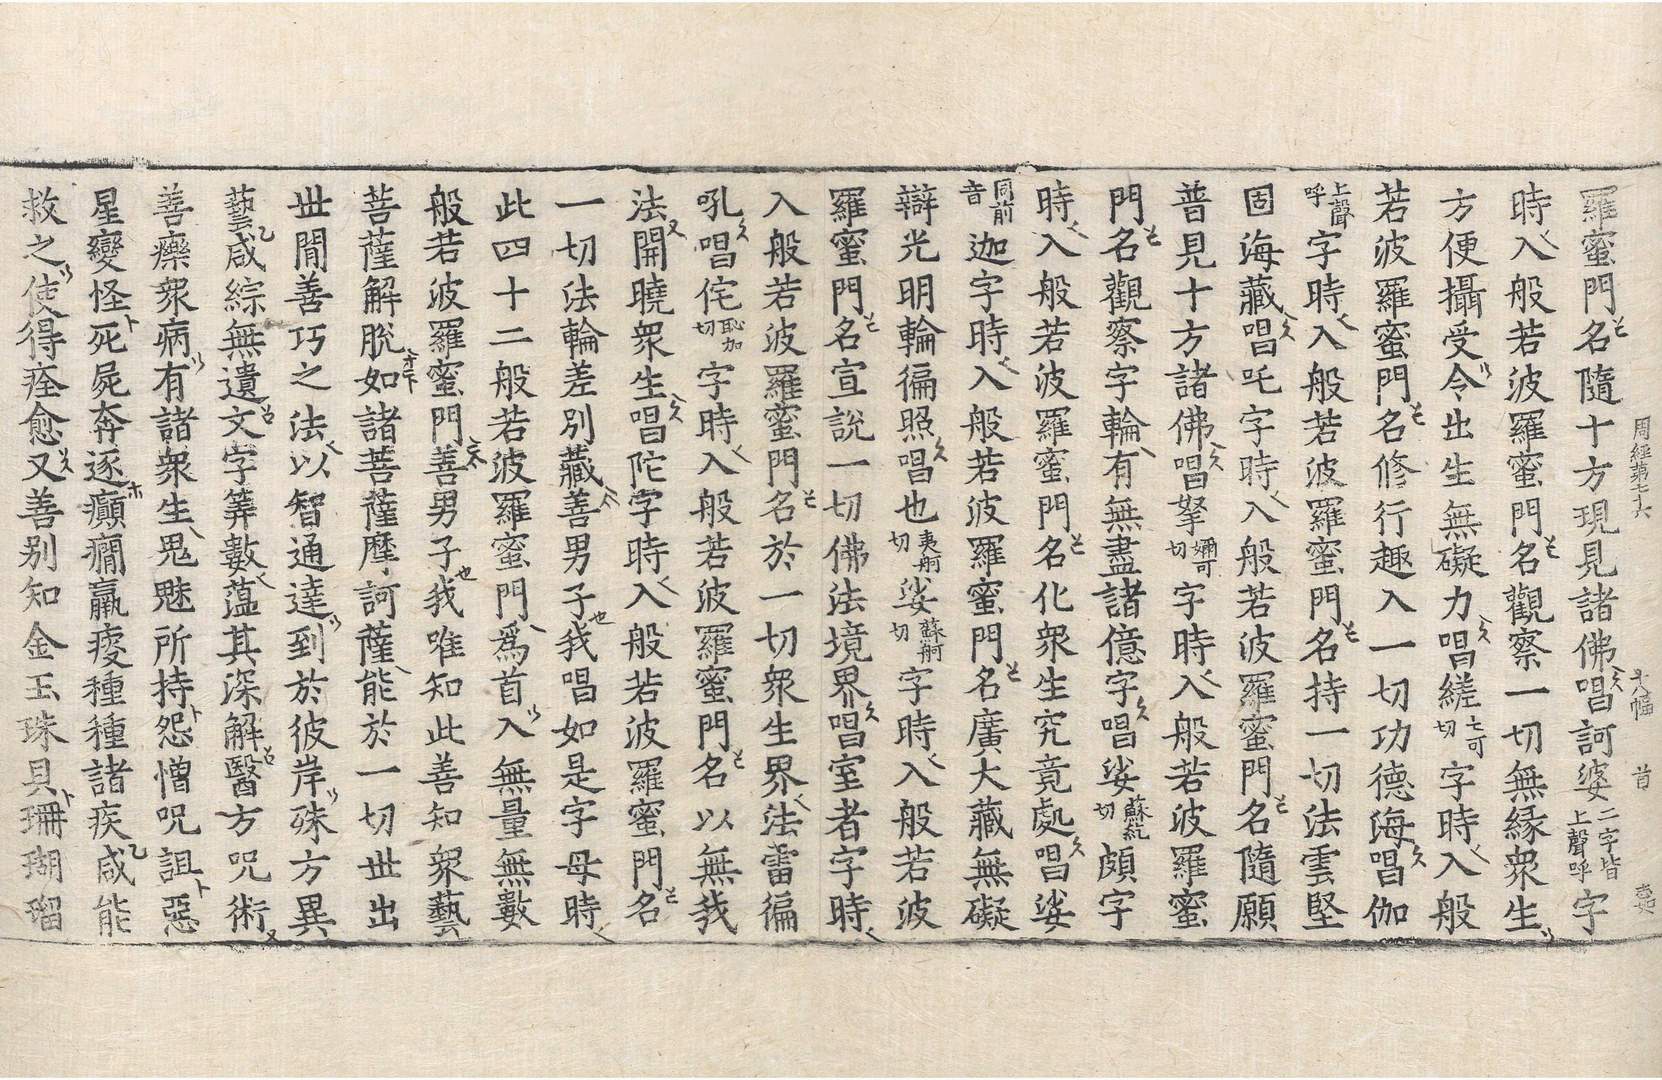 周經第七十六 十八幅 首
羅蜜門名隨十方現見諸佛唱訶婆二字皆上聲呼字
時入般若波羅蜜門名觀察一切無緣衆生
方便攝受令出生無礙力唱縒七可切字時入般
若波羅蜜門名修行趣入一切功德海唱伽
上聲呼字時入般若波羅蜜門名持一切法雲堅
固海藏唱吒字時入般若波羅蜜門名隨願
普見十方諸佛唱拏嬭可切字時入般若波羅蜜
門名觀察字輪有無盡諸億字唱娑蘇紇切頗字
時入般若波羅蜜門名化衆生究竟處唱娑
同前音迦字時入般若波羅蜜門名廣大藏無礙
辯光明輪徧照唱也夷舸切娑蘇舸切字時入般若波
羅蜜門名宣說一切佛法境界唱室者字時
入般若波羅蜜門名於一切衆生界法雷徧
吼唱侘恥加切字時入般若波羅蜜門名以無我
法開曉衆生唱陀字時入般若波羅蜜門名
一切法輪差別藏善男子我唱如是字母時
此四十二般若波羅蜜門爲首入無量無數
般若波羅蜜門善男子我唯知此善知衆藝
菩薩解脫如諸菩薩摩訶薩能於一切世出
世閒善巧之法以智通達到於彼岸殊方異
藝咸綜無遺文字筭數蘊其深解醫方呪術
善療衆病有諸衆生鬼魅所持怨憎呪詛惡
星變怪死屍奔逐癲癇羸痩種種諸疾咸能
救之使得痊愈又善别知金玉珠貝珊瑚瑠